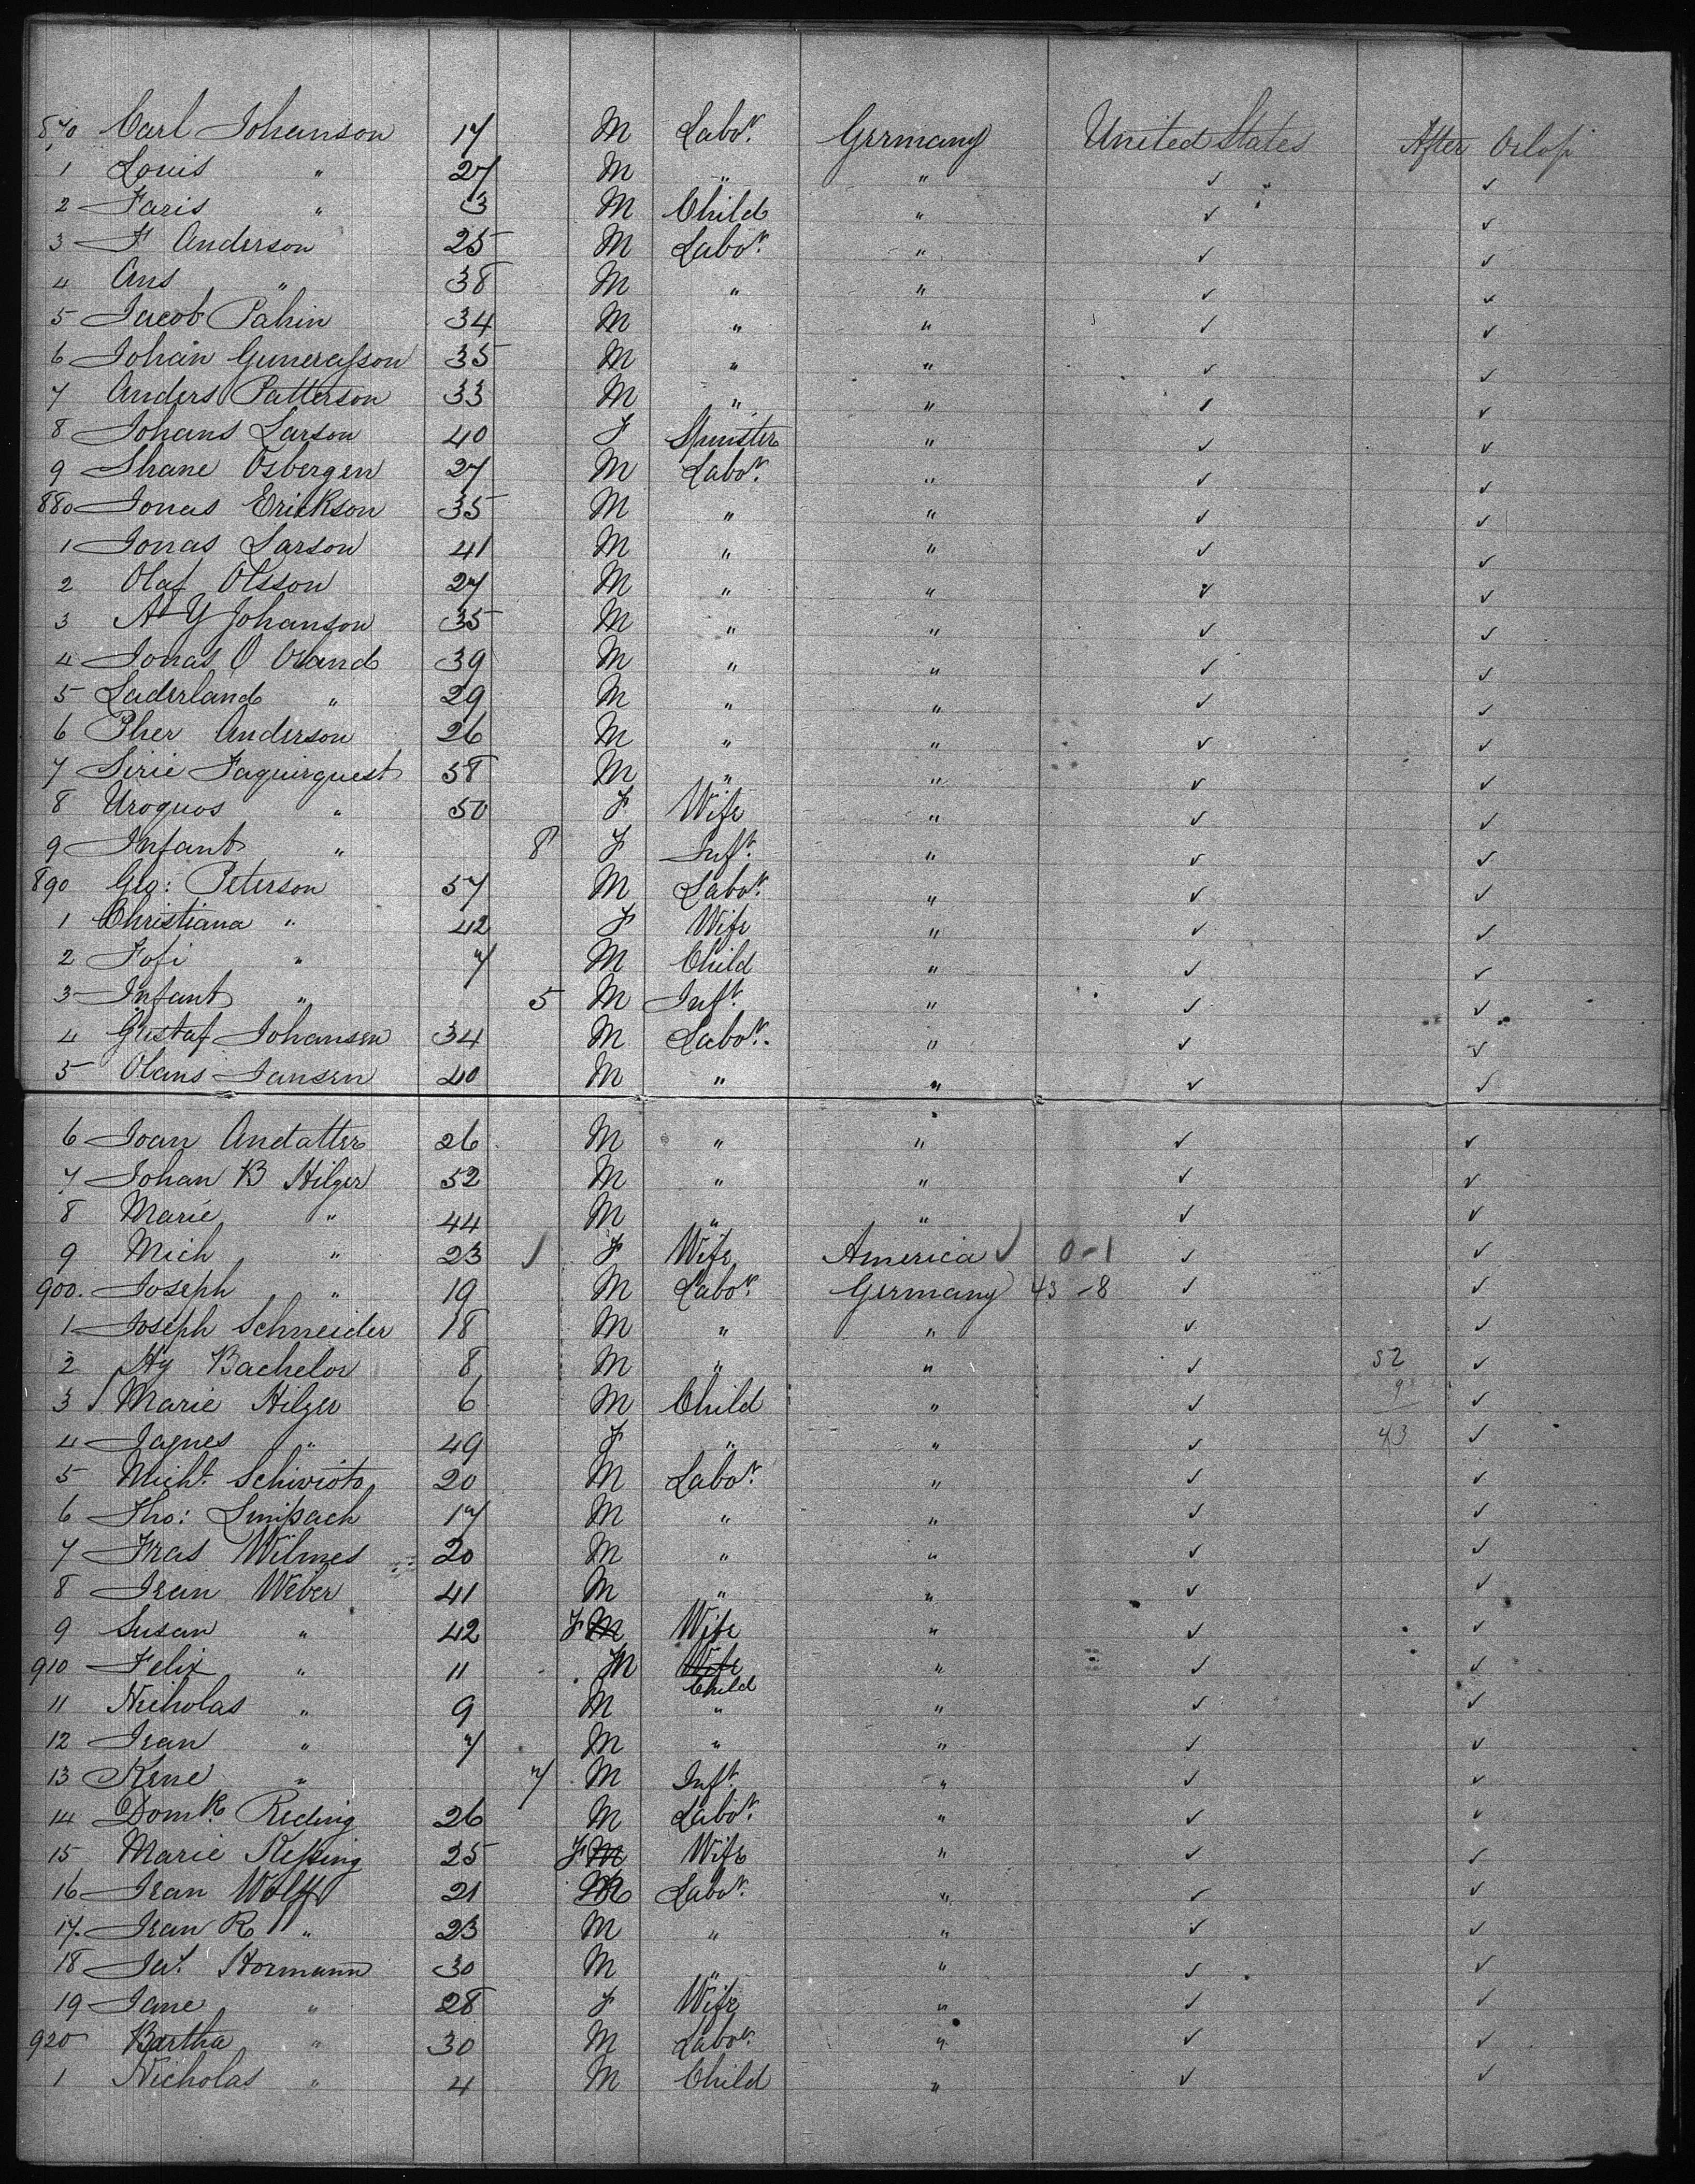 870 Carl Johanson 17 M Labo.r Germany United States After Orlop
1 Louis " 27 M " " ✓ ✓
2 Faris " 3 M Child " ✓ ✓
3 F Anderson 25 M Labo.r " ✓ ✓
4 Ans " 38 M " " ✓ ✓
5 Jacob Pahin 34 M " " ✓ ✓
6 Johan Gunerasson 35 M " " ✓ ✓
7 Anders Patterson 33 M " " ✓ ✓
8 Johans Larson 40 F Spinster " ✓ ✓
9 Shane Osbergen 27 M Labo.r " ✓ ✓
880 Jonas Erickson 35 M " " ✓ ✓
1 Jonas Larson 41 M " " ✓ ✓
2 Olaf Olsson 27 M " " ✓ ✓
3 A Y Johanson 35 M " " ✓ ✓
4 Jonas O Orand 39 M " " ✓ ✓
5 Laderland " 29 M " " ✓ ✓
6 Pher Anderson 26 M " " ✓ ✓
7 Sirie Faquirquest 58 M " " ✓ ✓
8 Uroquos " 50 F Wife " ✓ ✓
9 Infant " 8 F Inf.t " ✓ ✓
890 Geo: Peterson 57 M Labo.r " ✓ ✓
1 Christiana " 42 F Wife " ✓ ✓
2 Fofi " 7 M Child " ✓ ✓
3 Infant " 5 M Inf.t " ✓ ✓
4 Gustaf Johansen 34 M Labo.r " ✓ ✓
5 Olans Jansen 40 M " " ✓ ✓
6 Joan Andatter 26 M " " ✓ ✓
7 Johan B Hilger 52 M " " ✓ ✓
8 Marie " 44 M " " ✓ ✓
9 Mich " 23 ✓ F Wife America ✓ 0-1 ✓ ✓
900. Joseph " 19 M Labo.r Germany 43-8 ✓ ✓
1 Joseph Schneider 18 M " " ✓ ✓
2 Hy Bachelor 8 M " " ✓ 52 ✓
3 Marie Hilger 6 M Child " ✓ 9 ✓
4 Jagnes " 49 F " " ✓ 43 ✓
5 Mich.l Schivioto 20 M Labo.r " ✓ ✓
6 Tho: Limpach 17 M " " ✓ ✓
7 Fras Wilmes 20 M " " ✓ ✓
8 Jean Weber 41 M " " ✓ ✓
9 Susan " 42 F M Wife " ✓ ✓
910 Felix " 11 M Wife Child " ✓ ✓
11 Nicholas " 9 M " " ✓ ✓
12 Jean " 7 M " " ✓ ✓
13 Kene " 7 M Inf.t " ✓ ✓
14 Dom.k Reding 26 M Labo.r " ✓ ✓
15 Marie Kessing 25 F M Wife " ✓ ✓
16 Jean Wolff 21 M Labo.r " ✓ ✓
17. Jean R " 23 M " " ✓ ✓
18 Ja.s Hormann 30 M " " ✓ ✓
19 Jane " 28 F Wife " ✓ ✓
920 Bartha " 30 M Labo.r " ✓ ✓
1 Nicholas " 4 M Child " ✓ ✓